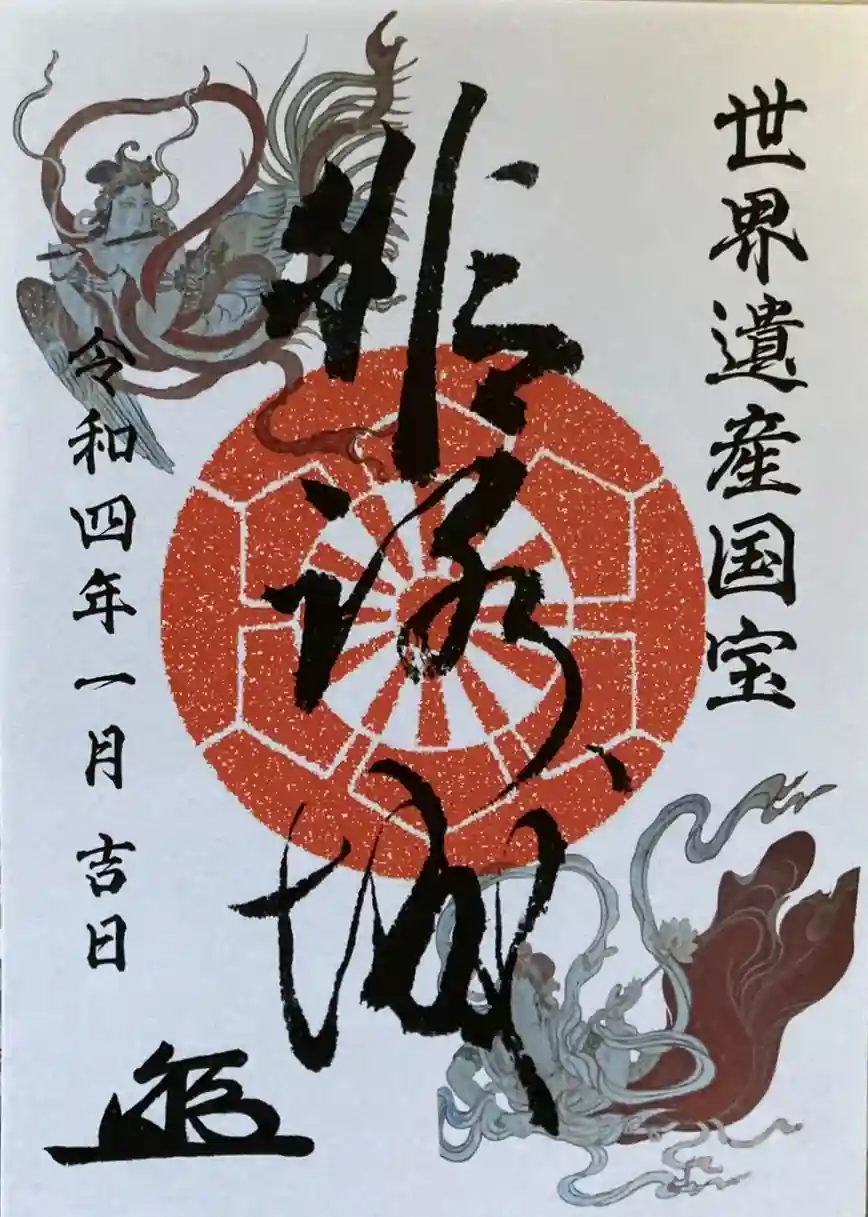 世界遺産国宝
姫路城
令和四年一月吉日